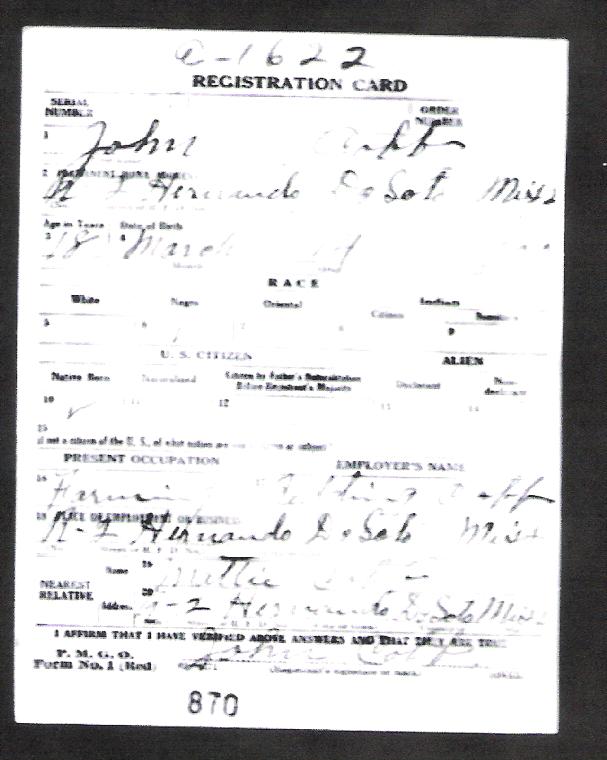 C-1622
REGISTRATION CARD
SERIAL NUMBER ORDER NUMBER
1 John
2 PERMANENT HOME ADDRESS
R-2 Hernando DeSoto Miss
Age in Years Date of Birth
3 18 4 March
RACE
White Negro Oriental Indian
Citizen
5 6 7 8 9
U. S. CITIZEN ALIEN
Native Born Naturalized Citizen by Father's Naturalization Before Registrant's Majority Declarant Non-declarant
10 11 12 13 14
15
If not a citizen of the U. S., of what nation are you a citizen or subject?
PRESENT OCCUPATION EMPLOYER'S NAME
16 Farming
18 PLACE OF EMPLOYMENT OR BUSINESS
R-2 Hernando DeSoto Miss
NEAREST RELATIVE
Name 19 Mittie
Address 20 R-2 Hernando DeSoto Miss
I AFFIRM THAT I HAVE VERIFIED ABOVE ANSWERS AND THAT THEY ARE TRUE
P. M. G. O.
Form No. 1 (Red) John
(Registrant's signature or mark)
870